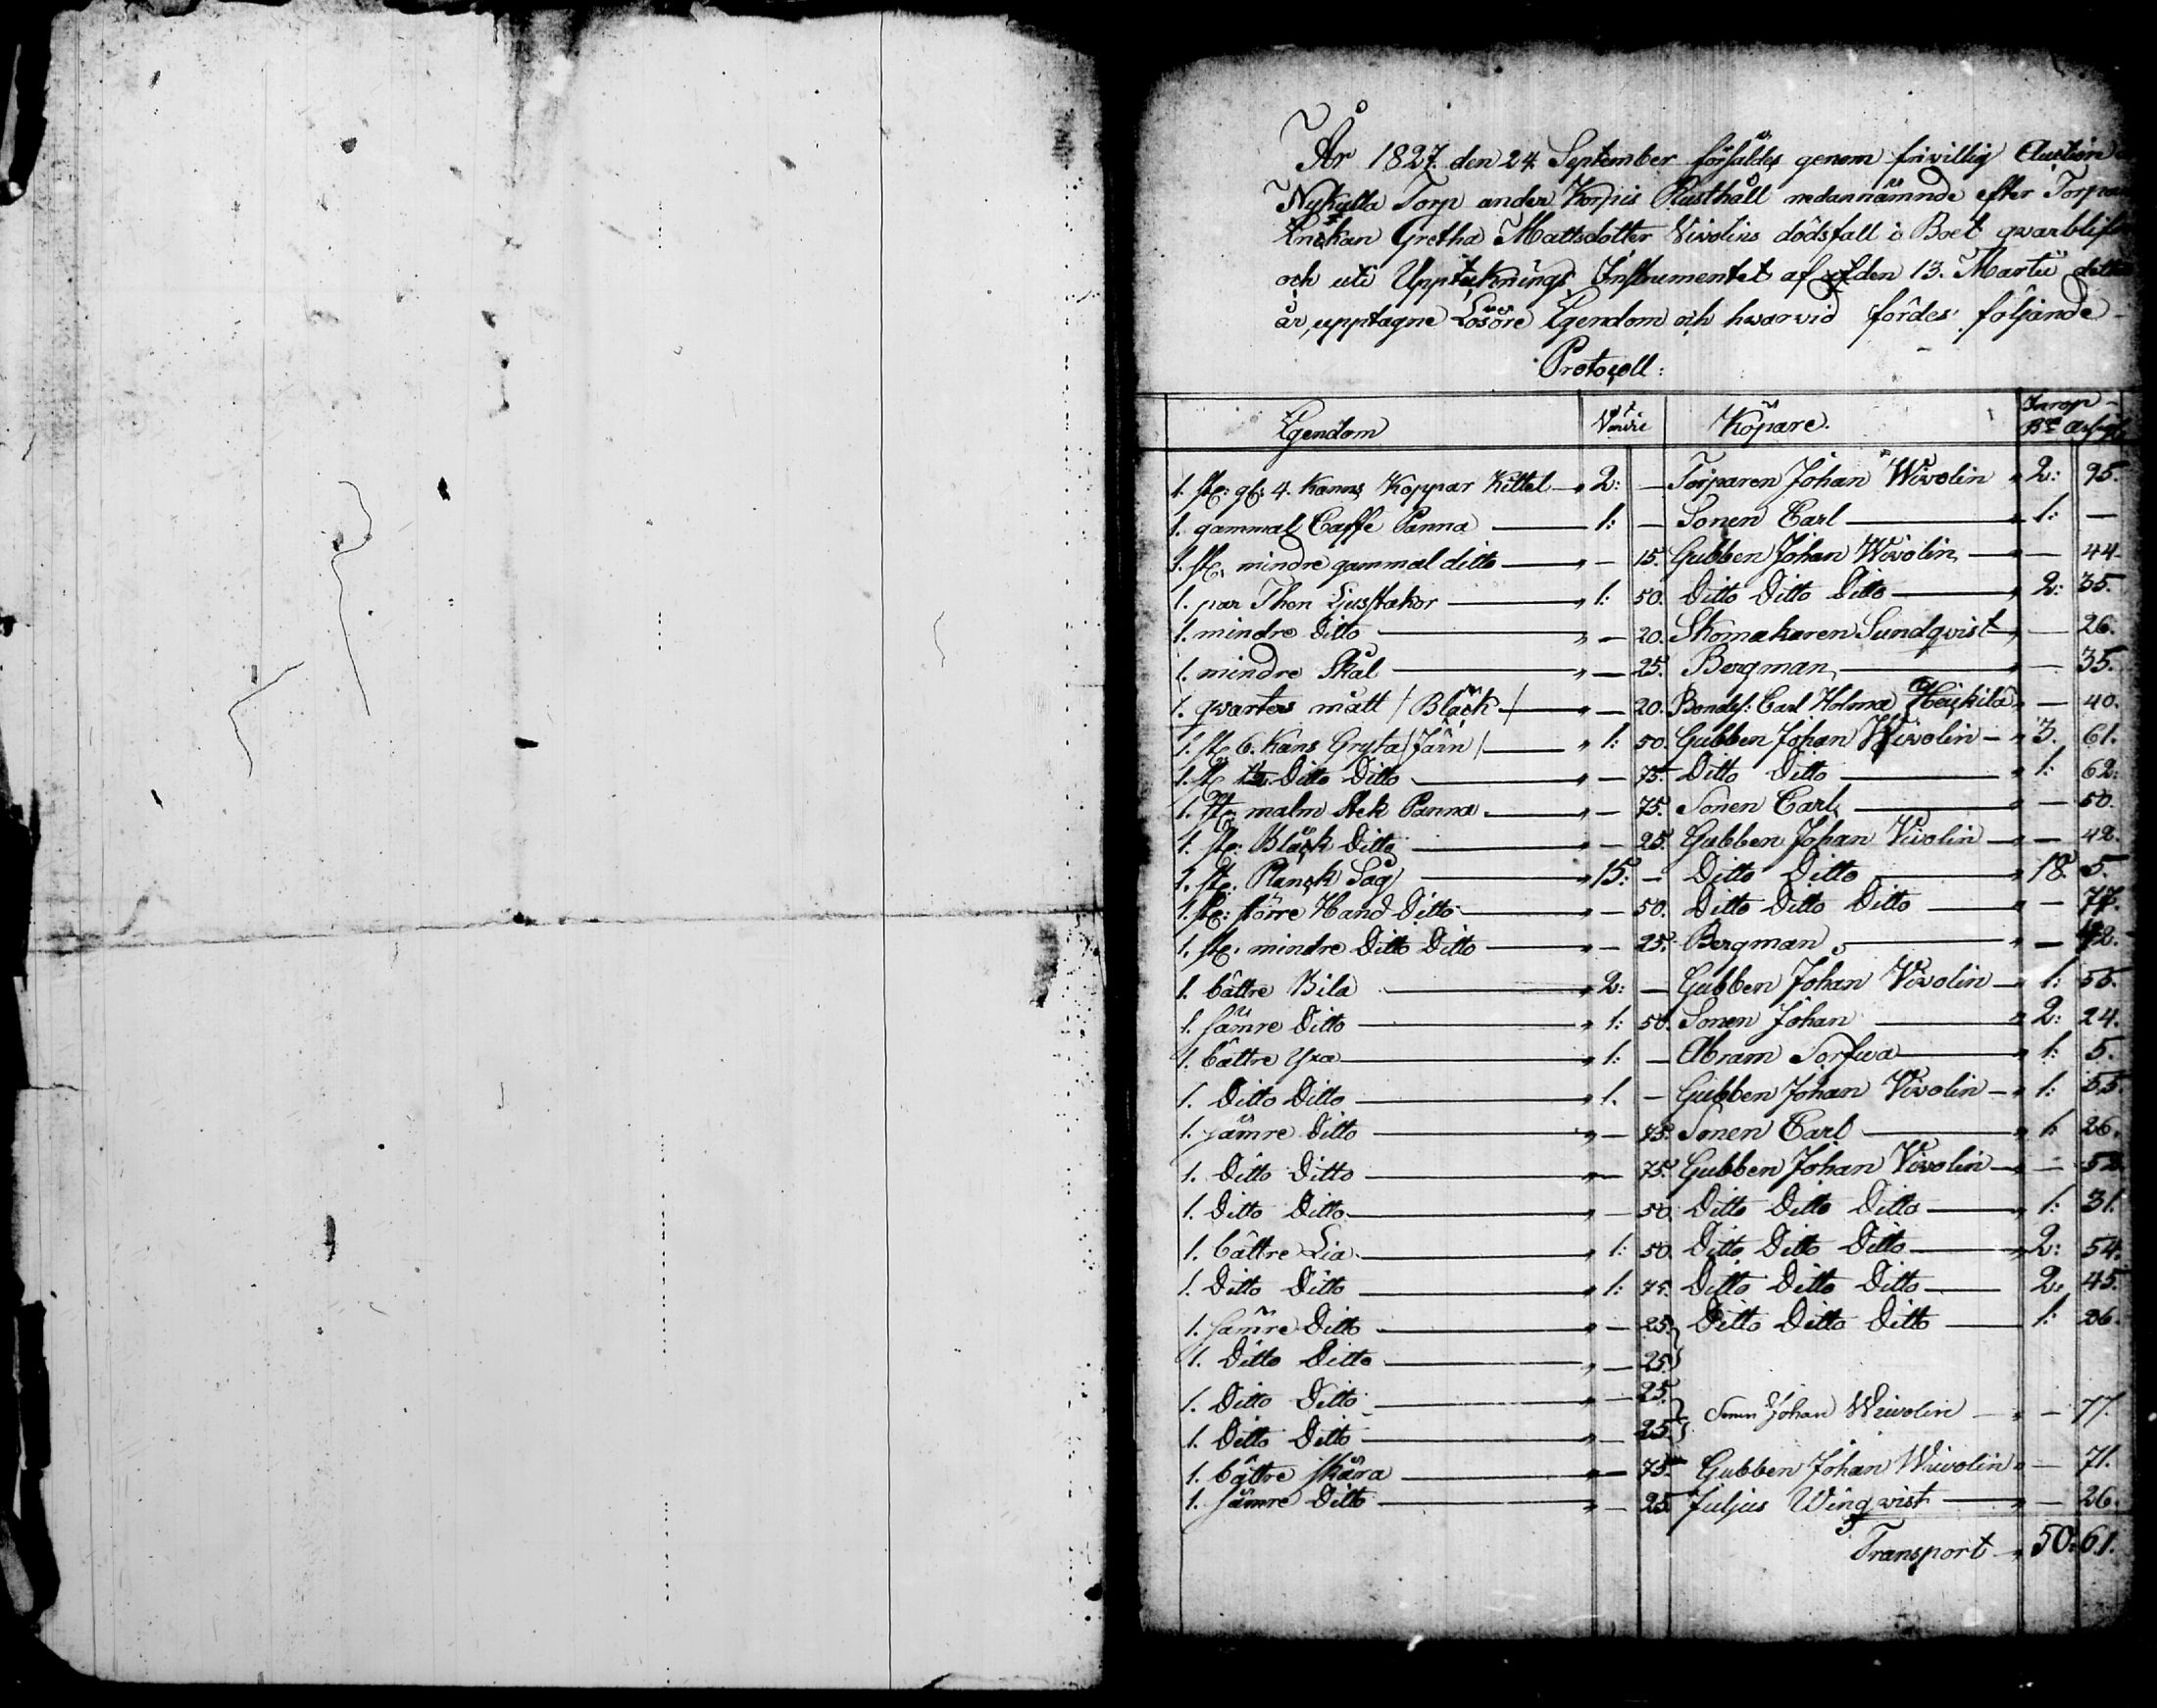 År 1827. den 24 September försåldes genom frivillig Auction
Nykulla Torp under Korpis Rusthåll nedannämnde efter
Enckan Gretha Mattsdotter Vivolins dödsfall i Boet
och uti Uppteknings Instrumentet af den 13. Martii
år, upptagne Lösöre Egendom och hvarvid fördes följande
Protocoll:
Egendom Värde Köpare. Inrop
1. st: 4. Kanns Koppar Kittel 2: — Torparen Johan Wivolin 2: 95.
1. gammal Caffe Panna 1: — Sonen Carl 1: —
1. st: mindre gammal ditto — 15. Gubben Johan Wivolin — 44
1. par Then Ljusstakor 1: 50. Ditto Ditto Ditto 2: 35.
1. mindre Ditto — 20. Skomakaren Sundqvist — 26.
1. mindre Skål — 25. Bergman — 35.
1. qvarters mått / Bläck / — 20. Bondes: Carl Holma Heickilä — 40.
1. st: 6. Kans Gryta / Järn / 1: 50. Gubben Johan Wivolin 3. 61.
1. st 1½ Ditto Ditto — 75. Ditto Ditto 1: 62.
1. st: malm Stek Panna — 75. Sonen Carl — 50.
1. st: Bläck Ditto — 25. Gubben Johan Vivolin — 42.
1. st: Planck Såg 15: — Ditto Ditto 18. 5.
1. st: större Hand Ditto — 50. Ditto Ditto Ditto — 77.
1. st: mindre Ditto Ditto — 25. Bergman — 42.
1. bättre Bila 2: — Gubben Johan Vivolin 1: 55.
1. sämre Ditto 1: 50. Sonen Johan 2: 24.
1. bättre Yxa 1: — Abram Sorfwa 1: 5.
1. Ditto Ditto 1. — Gubben Johan Vivolin 1: 55.
1. sämre Ditto — 75. Sonen Carl 1. 26.
1. Ditto Ditto — 75. Gubben Johan Vivolin — 52
1. Ditto Ditto — 50. Ditto Ditto Ditto 1: 31.
1. bättre Lia 1: 50. Ditto Ditto Ditto 2: 54.
1. Ditto Ditto 1: 75. Ditto Ditto Ditto 2: 45.
1. sämre Ditto — 25. Ditto Ditto Ditto 1: 26.
1. Ditto Ditto — 25.
1. Ditto Ditto — 25. Sonen Johan Wivolin — 77.
1. Ditto Ditto — 25.
1. bättre skära — 75. Gubben Johan Wivolin — 71.
1. sämre Ditto — 25. Juljus Winqvist — 26.
Transport 50: 61.